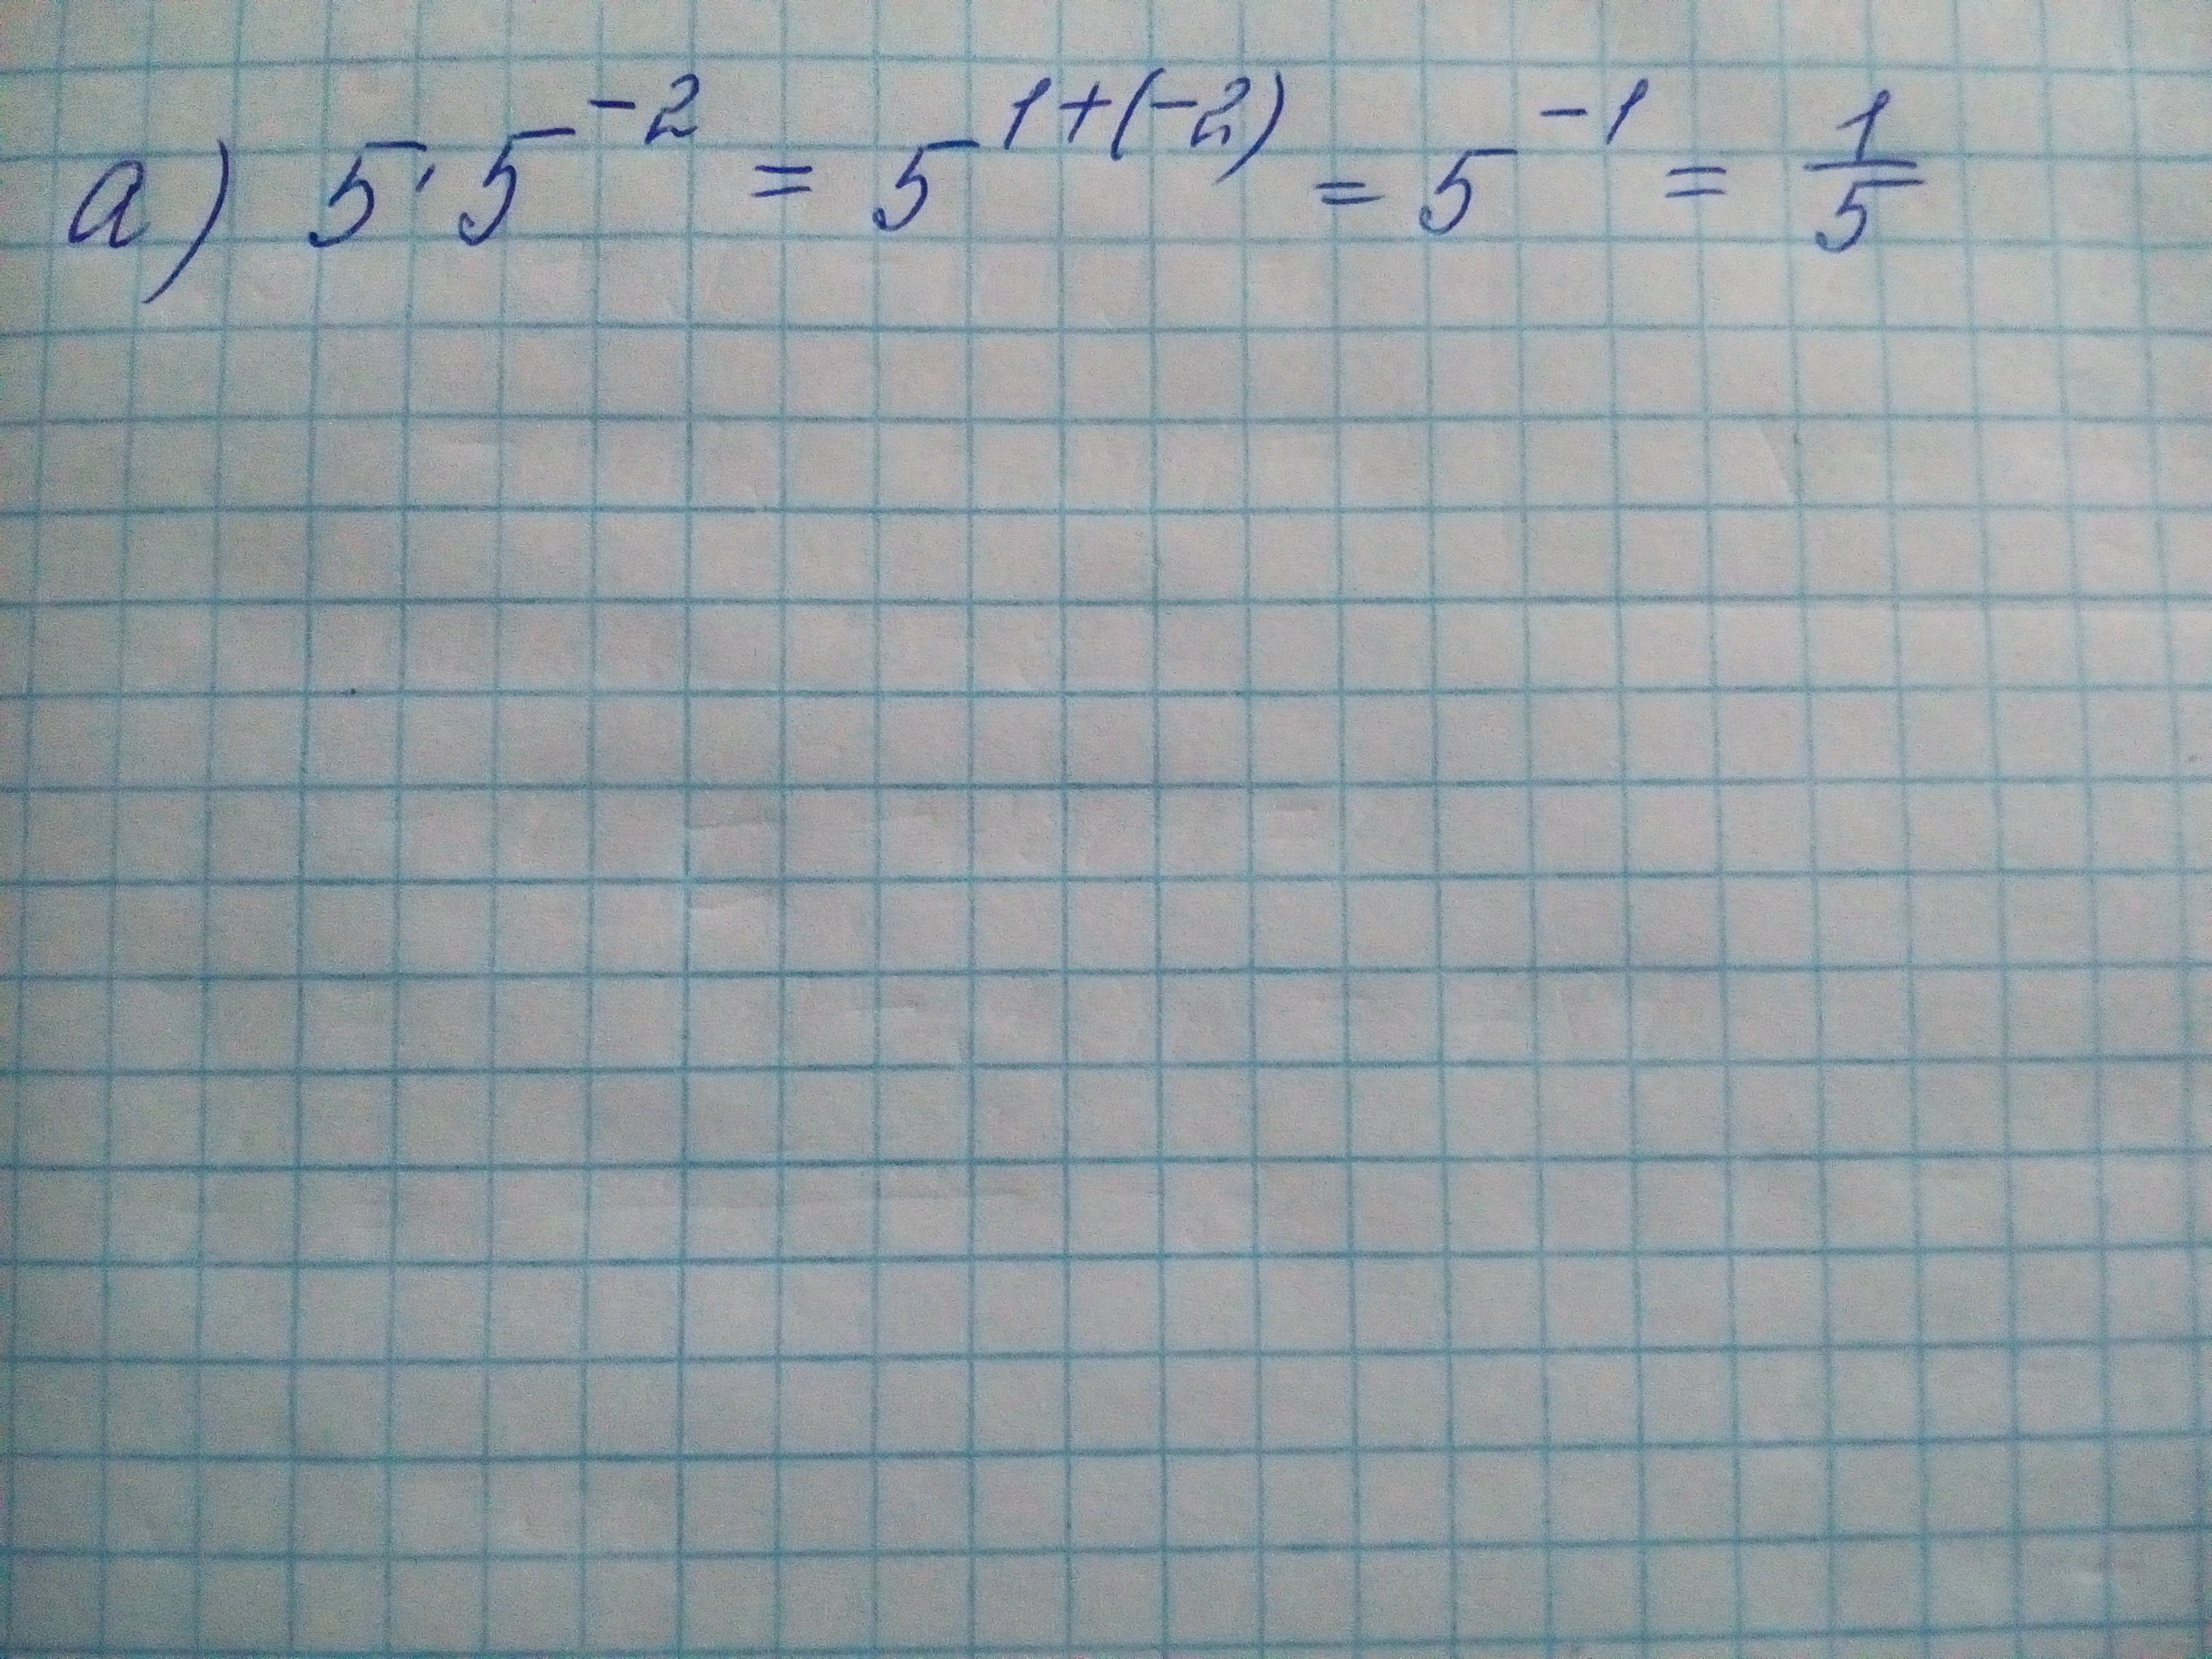 а) 5 · 5⁻² = 5¹⁺⁽⁻²⁾ = 5⁻¹ = 1/5